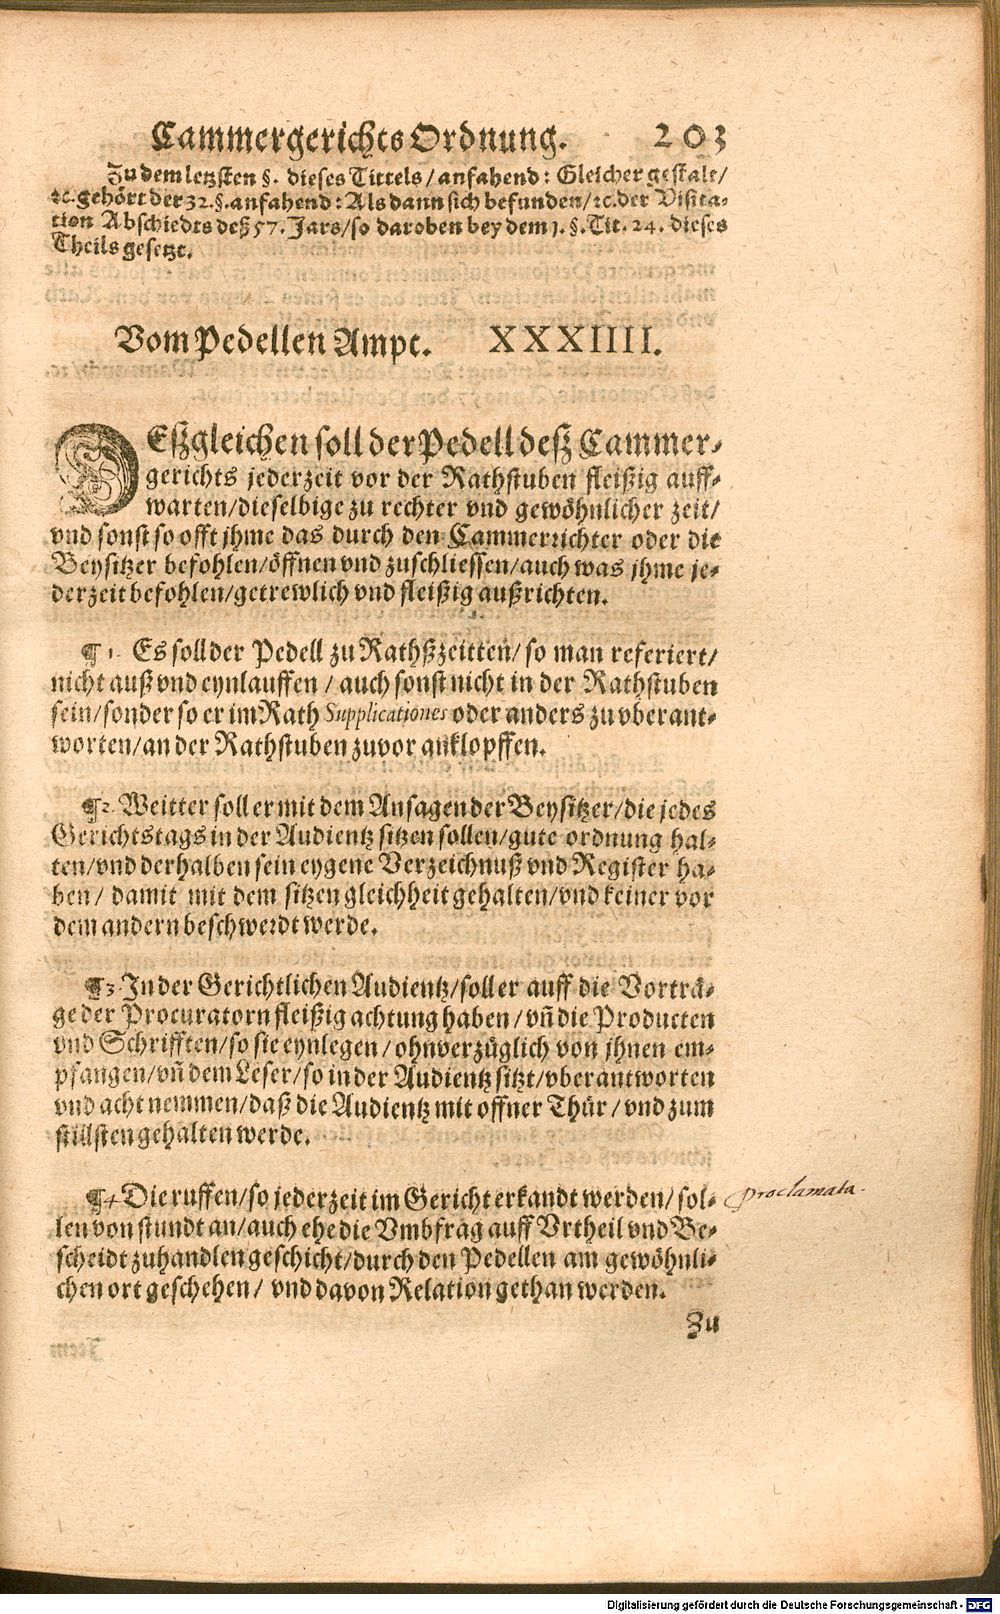 Cammergerichts Ordnung. 203
Zu dem letzsten §. dieses Tittels / anfahend: Gleicher gestalt /
ꝛc. gehört der 32. §. anfahend: Als dann sich befunden / ꝛc. der Visita-
tion Abschiedts deß 57. Jars / so daroben bey dem 1. §. Tit. 24. dieses
Theils gesetzt.
Vom Pedellen Ampt. XXXIIII.
DEßgleichen soll der Pedell deß Cammer-
gerichts jederzeit vor der Rathstuben fleißig auff-
warten / dieselbige zu rechter vnd gewöhnlicher zeit /
vnd sonst so offt jhme das durch den Cammerrichter oder die
Beysitzer befohlen / öffnen vnd zuschliessen / auch was jhme je-
derzeit befohlen / getrewlich vnd fleißig außrichten.
¶ 1. Es soll der Pedell zu Rathßzeitten / so man referiert /
nicht auß vnd eynlauffen / auch sonst nicht in der Rathstuben
sein / sonder so er im Rath Supplicationes oder anders zu vberant-
worten / an der Rathstuben zuvor anklopffen.
¶ 2. Weitter soll er mit dem Ansagen der Beysitzer / die jedes
Gerichtstags in der Audientz sitzen sollen / gute ordnung hal-
ten / vnd derhalben sein eygene Verzeichnuß vnd Register ha-
ben / damit mit dem sitzen gleichheit gehalten / vnd keiner vor
dem andern beschwerdt werde.
¶ 3. In der Gerichtlichen Audientz / soll er auff die Vorträ-
ge der Procuratorn fleißig achtung haben / vn̄ die Producten
vnd Schrifften / so sie eynlegen / ohnverzüglich von jhnen em-
pfangen / vn̄ dem Leser / so in der Audientz sitzt / vberantworten
vnd acht nemmen / daß die Audientz mit offner Thür / vnd zum
stillsten gehalten werde.
¶ 4. Die ruffen / so jederzeit im Gericht erkandt werden / sol-
len von stundt an / auch ehe die Vmbfrag auff Vrtheil vnd Be-
scheidt zuhandlen geschicht / durch den Pedellen am gewöhnli-
chen ort geschehen / vnd davon Relation gethan werden.
Proclamata.
Zu
Digitalisierung gefördert durch die Deutsche Forschungsgemeinschaft - DFG